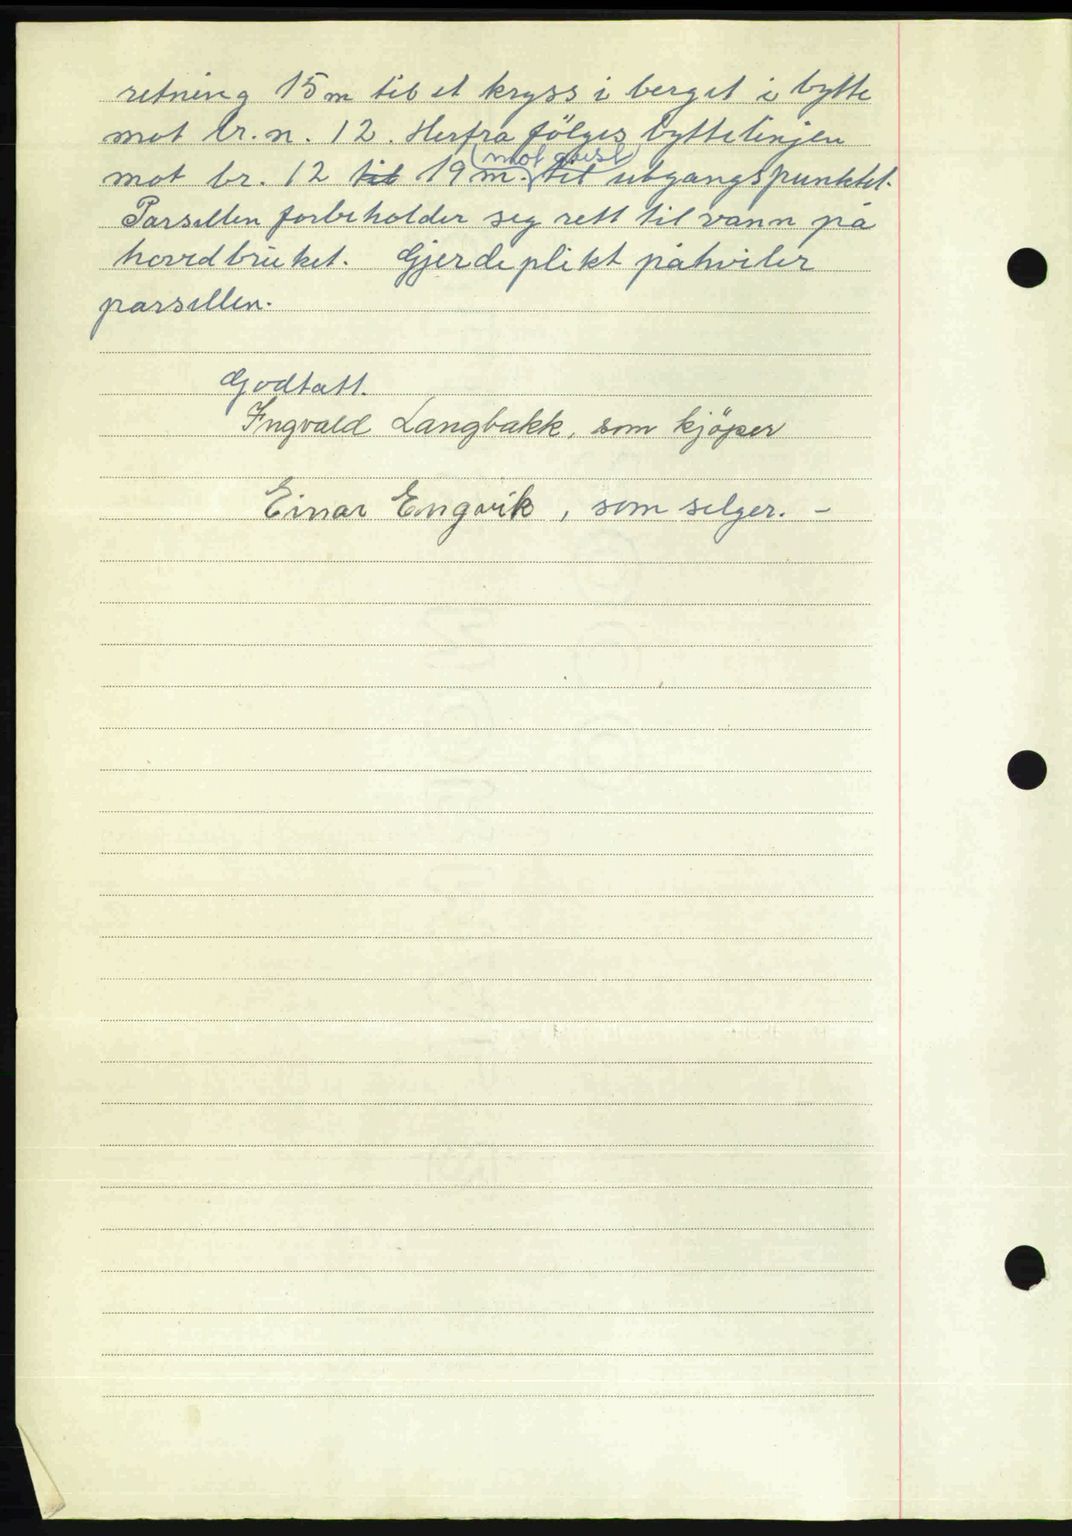 retning 15 m til et kryss i berget i bytte
mot br. n. 12. Herfra fölges byttelinjen
mot br. 12 til 19 m. (mot øvest) til utgangspunktet.
Parsellen forbeholder seg rett til vann på
hovedbruket. Gjerdeplikt påhviler
parsellen.
Godtatt.
Ingvald Langbakk, som kjöper
Einar Engvik, som selger. -